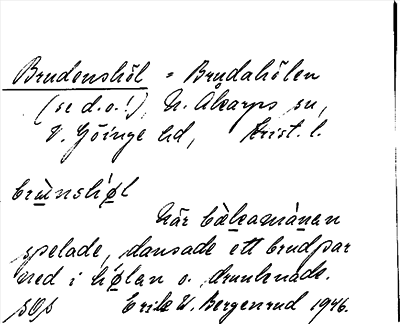 Brudenshöl = Brudahölen
(se d.o.!), N. Åkarps sn,
V. Göinge hd, Krist. l.
brùnshǿl
När bækamánen
spelade, dansade ett brudpar
ned i hǿlan o. drunknade.
Erik W. Bergenrud 1946.